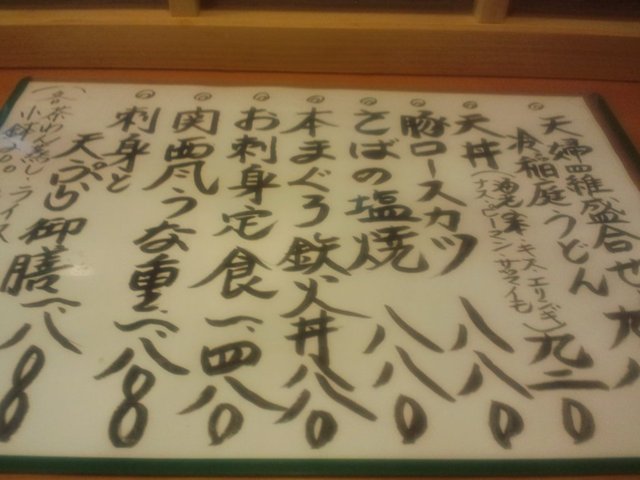 天婦羅盛合せ 九八
冷稲庭うどん 九二〇
天丼(海老・キス・エリンギ
ナス・ピーマン・サツマイモ) 八八〇
豚ロースカツ 八八〇
さばの塩焼 八八〇
本まぐろ鉄火丼 八八〇
お刺身定食 一、四八〇
関西風うな重 一、八八〇
刺身と
天ぷら御膳 一、八八〇
茶わん蒸し
小鉢 ライス